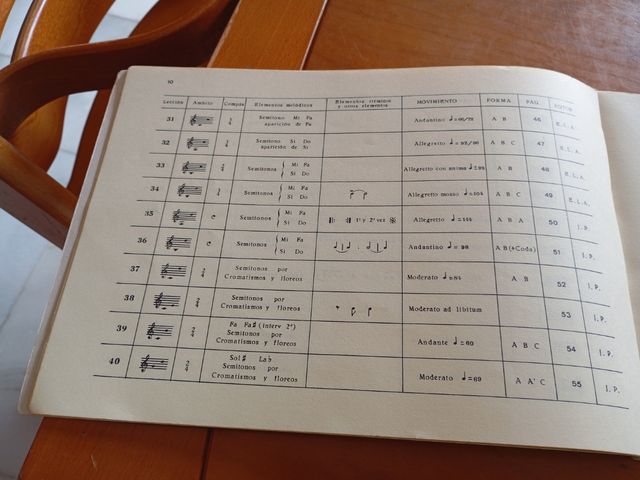 10
Lección Ámbito Compás Elementos melódicos Elementos rítmicos y otros elementos MOVIMIENTO FORMA PAG.
31 Semitono Mi Fa
aparición de Fa Andantino A B 46 E.L.A.
32 Semitono Si Do
aparición de Si Allegretto = 92/96 A B C 47 E.L.A.
33 2/4 Semitonos { Mi Fa
Si Do Allegretto con anima A B 48 E.L.A.
34 Semitonos { Mi Fa
Si Do Allegretto mosso = 104 A B C 49 E.L.A.
35 c Semitonos { Mi Fa
Si Do 1ª y 2ª vez Allegretto A B A 50 I.P.
36 c Semitonos { Mi Fa
Si Do Andantino = 98 A B (+Coda) 51 I.P.
37 2/4 Semitonos por
Cromatismos y floreos Moderato = 84 A B 52 I.P.
38 2/4 Semitonos por
Cromatismos y floreos Moderato ad libitum 53 I.P.
39 2/4 Fa Fa♯ (interv 2ª)
Semitonos por
Cromatismos y floreos Andante = 60 A B C 54 I.P.
40 2/4 Sol♯ La♭
Semitonos por
Cromatismos y floreos Moderato = 69 A A' C 55 I.P.